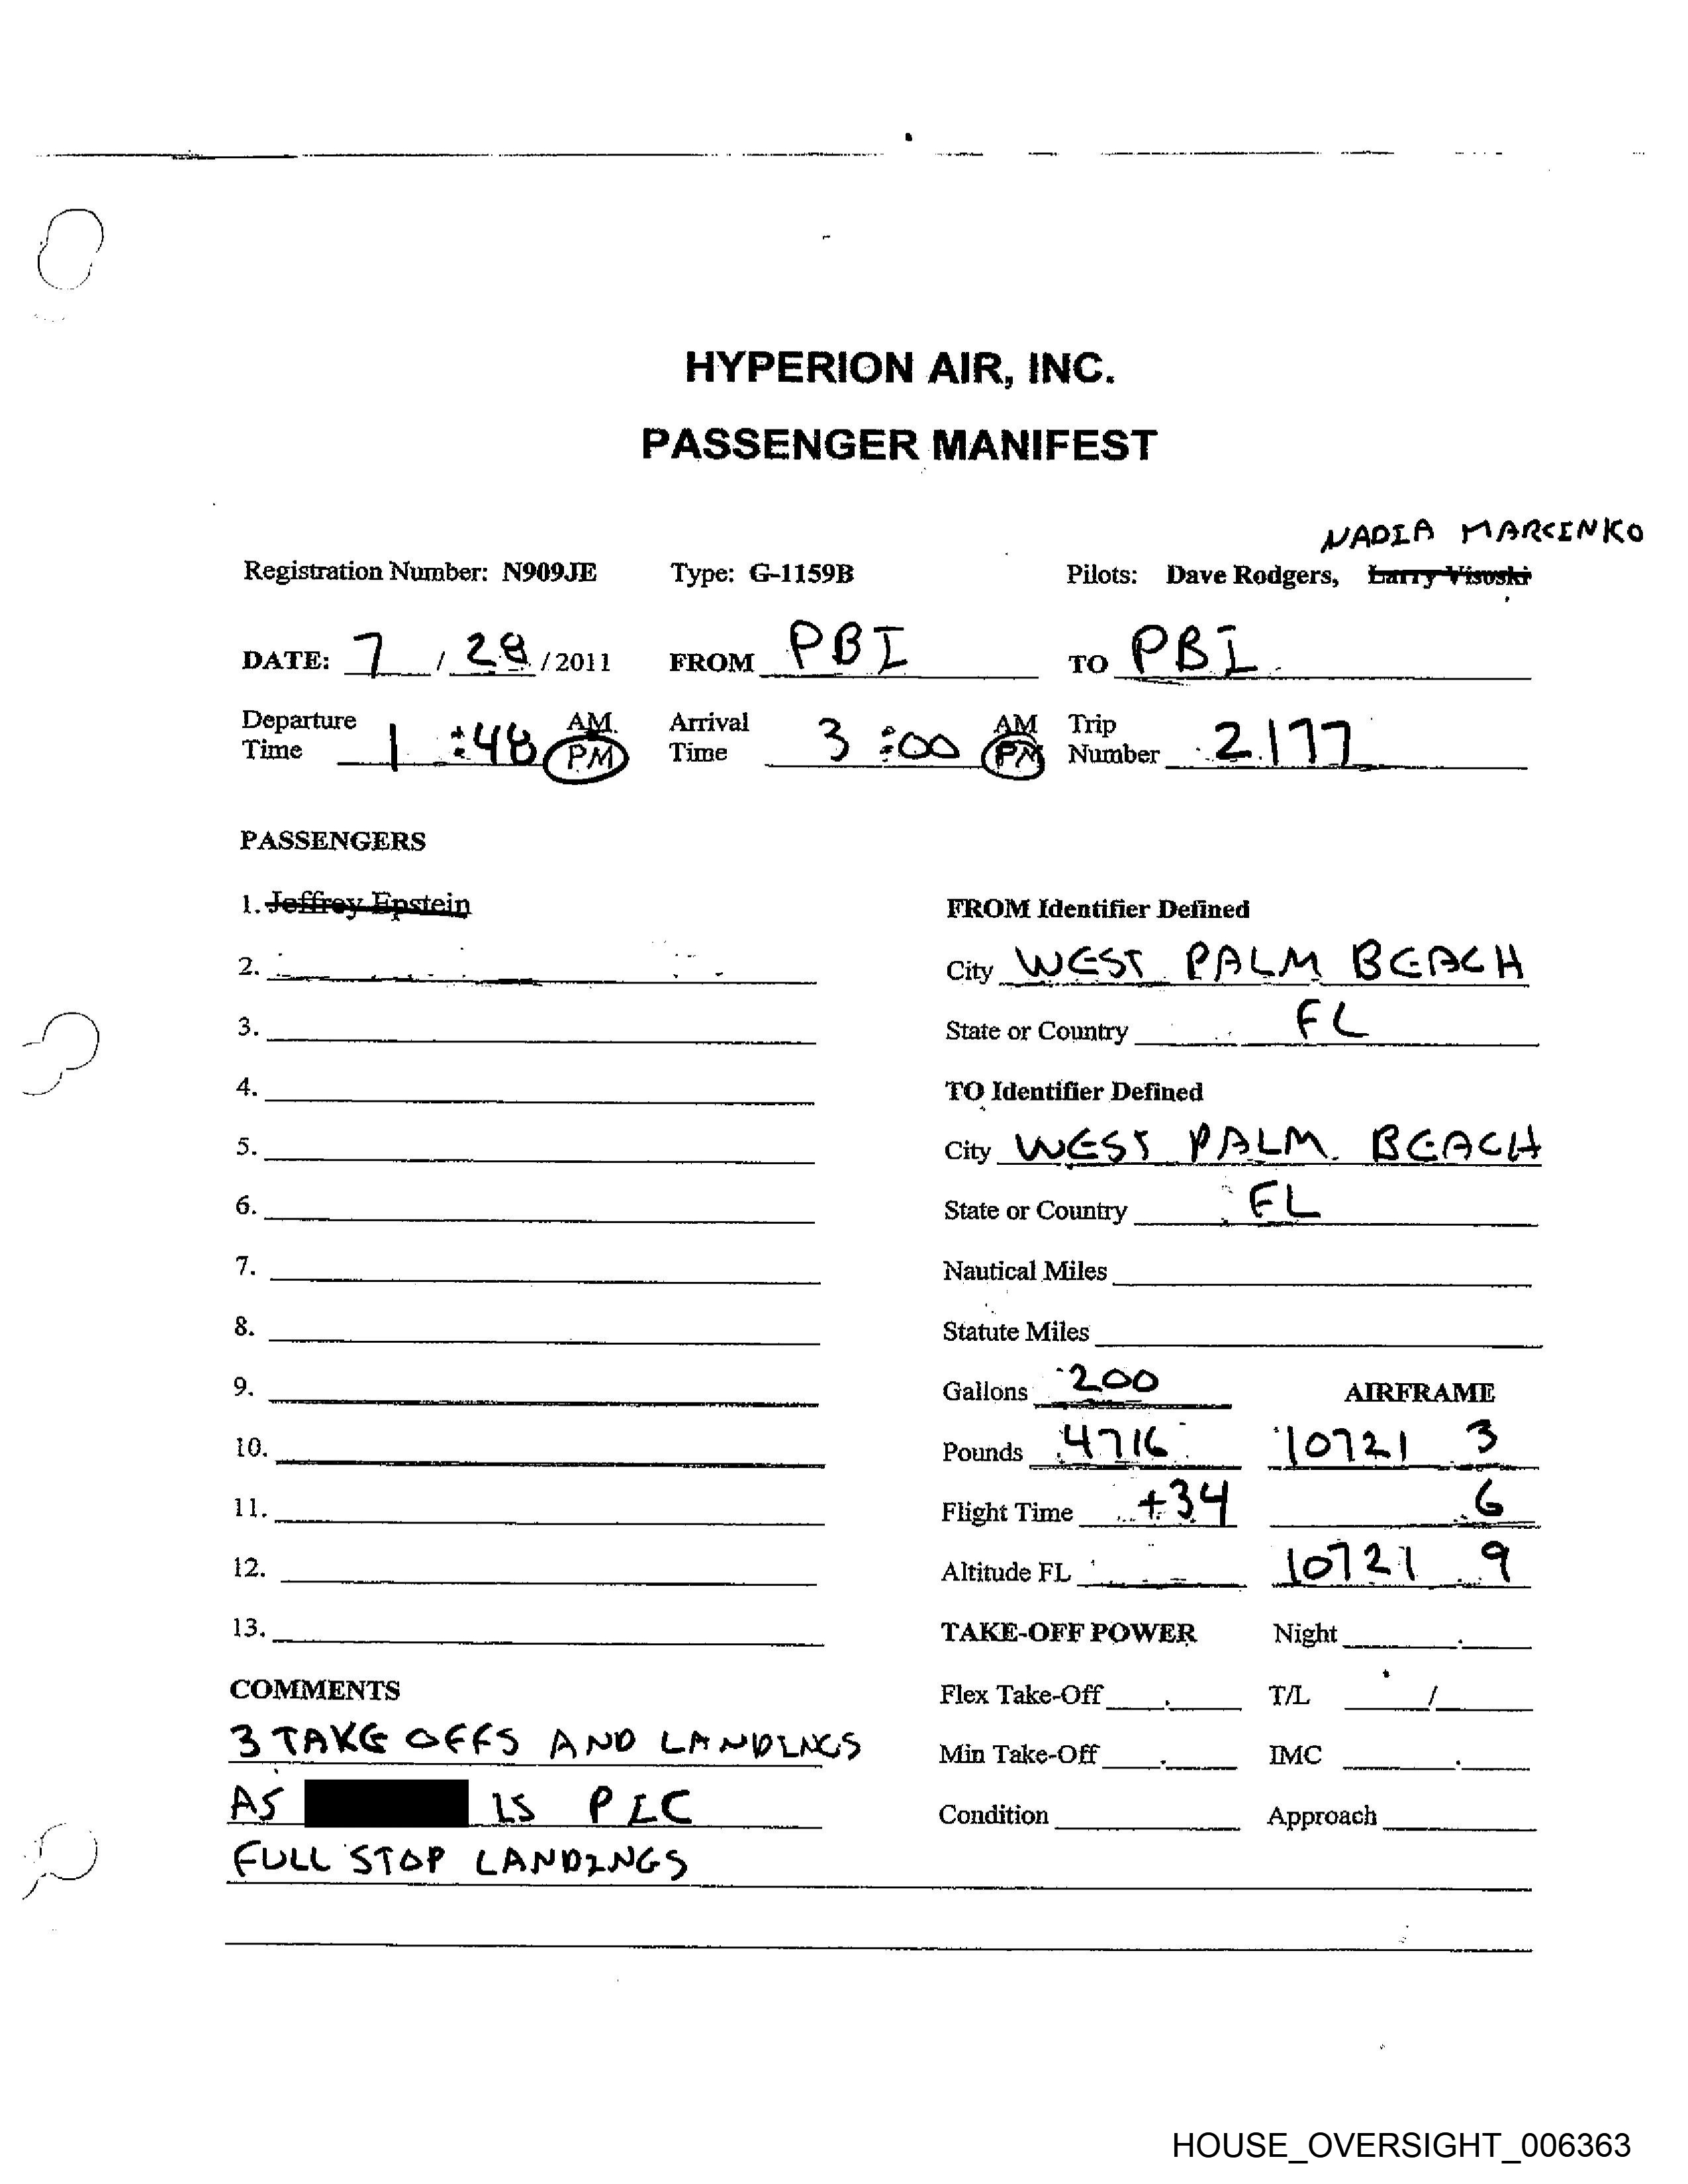 HYPERION AIR, INC.
PASSENGER MANIFEST
NADIA MARCINKO
Registration Number: N909JE Type: G-1159B Pilots: Dave Rodgers, Larry Visoski
DATE: 7 / 28 / 2011 FROM PBI TO PBI
Departure Time 1 :48 AM PM Arrival Time 3 :00 AM PM Trip Number 2177
PASSENGERS
1. Jeffrey Epstein
FROM Identifier Defined
2.
City WEST PALM BEACH
3.
State or Country FL
4.
TO Identifier Defined
5.
City WEST PALM BEACH
6.
State or Country FL
7.
Nautical Miles
8.
Statute Miles
9.
Gallons 200 AIRFRAME
10.
Pounds 4716 10721 3
11.
Flight Time +34 6
12.
Altitude FL 10721 9
13.
TAKE-OFF POWER Night
COMMENTS
Flex Take-Off T/L /
3 TAKE OFFS AND LANDINGS
Min Take-Off IMC
AS IS PIC
Condition Approach
FULL STOP LANDINGS
HOUSE_OVERSIGHT_006363